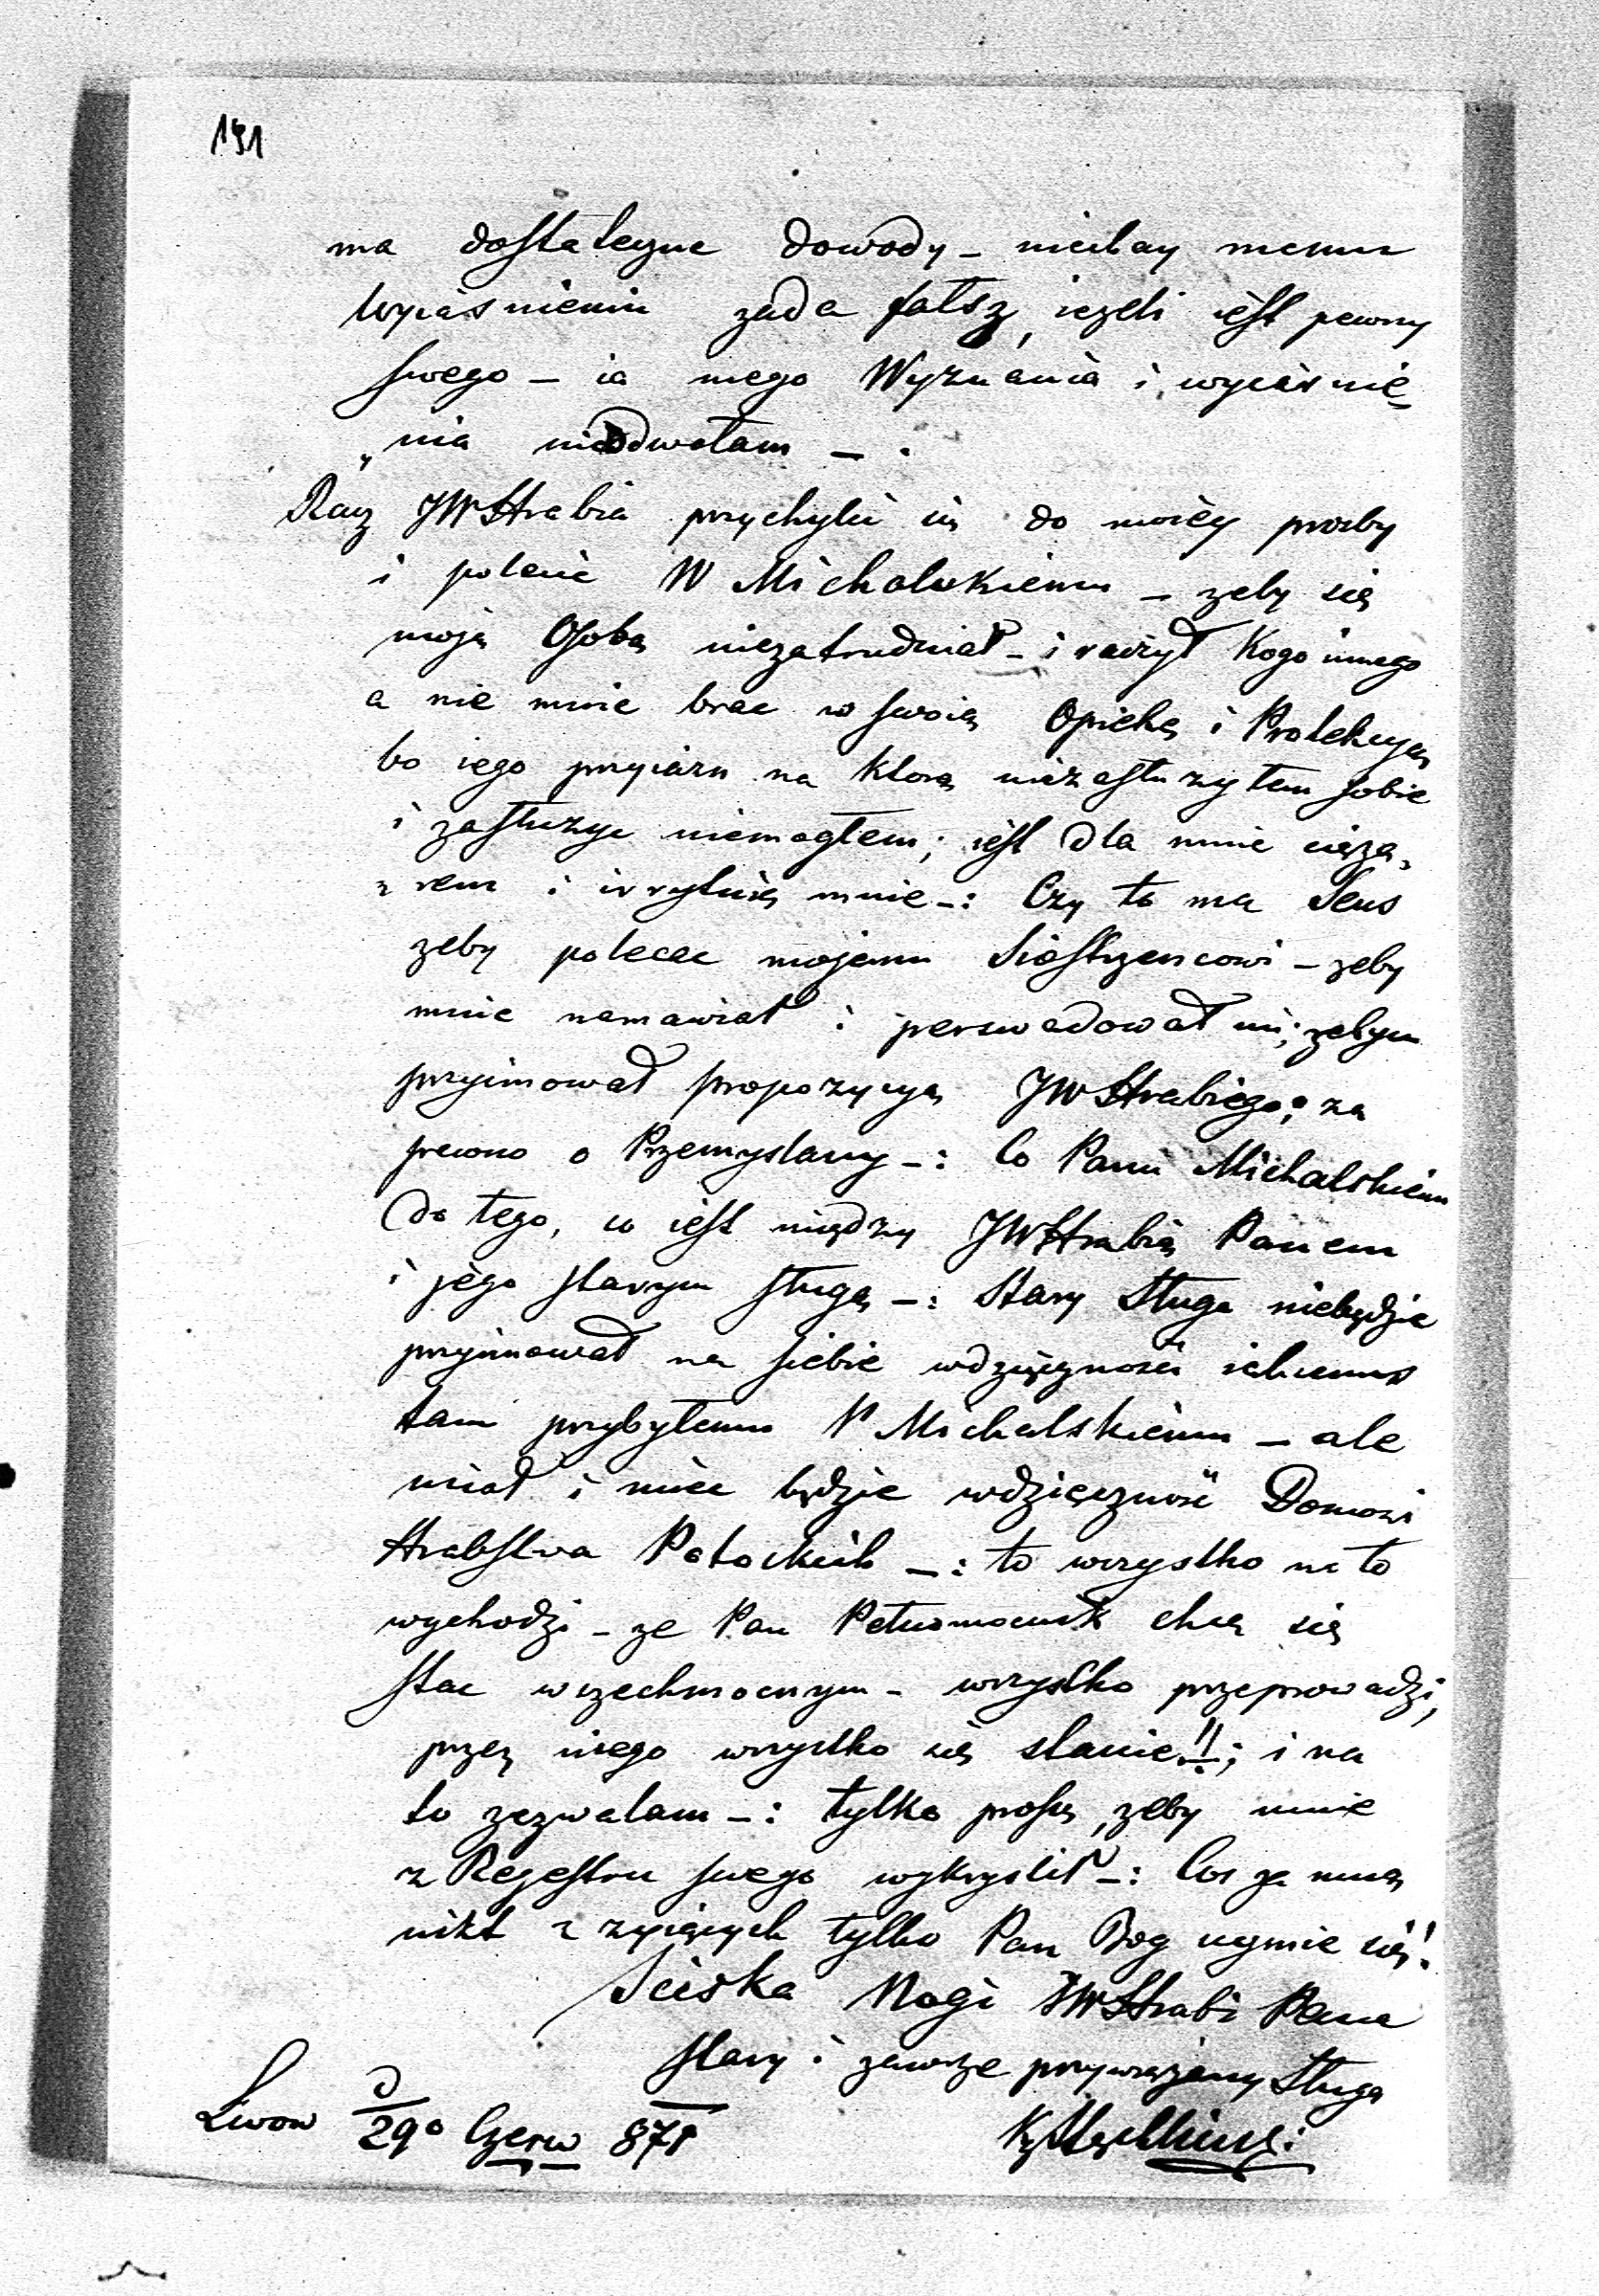 191
ma dostateczne dowody – niechay memu
wyiasnieniu zada fałsz, iezeli iest pewny
swego – ia mego Wyznania i wyiasnie„
„nia nieodwołam – .
Racz JWHrabia przychylić się do moiéy prosby
i polecić W Michalskiemu – zeby się
moją Osobą niezatrudniał – i raczył Kogo innego
a nie mnie brac w swoią Opiekę i Protekcyą
bo iego przyiazn na ktorą niezasłuzyłem sobie
i zasłuzyc niemogłem; iest dla mnie cięza„
„rem i irrytuią mnie –: Czy to ma Sens
zeby polecac mojemu Siostrzencowi – zeby
mnie namawiał i perswadował mi; zebym
przyimował propozycyą JWHrabiego; za
pewno o Przemyslany –: Co Panu Michalskiemu
do tego, co iest między JWHrabią Panem
i jego starym sługą –: Stary Sługa niebędzie
przyimował na siebie wdzięcznosci iakiemus
tam przybyłemu W Michalskiemu – ale
miał i miec będzie wdzięcznosć Domowi
Hrabstwa Potockich –: to wszystko na to
wychodzi – ze Pan Pełnomocnik chce się
stac wszechmocnym – wszystko przeprowadzi,
przez niego wszystko się stanie!!; i na
to zezwalam –: tylko proszę, zeby mnie
z Regestru swego wykryslił –: Cos za mną
nikt z zyiących tylko Pan Bog uymie się!
Sciska Nogi JWHrabi Pana
stary i zawsze przywiązany Sługa
Lwow d 29º Czerw 871